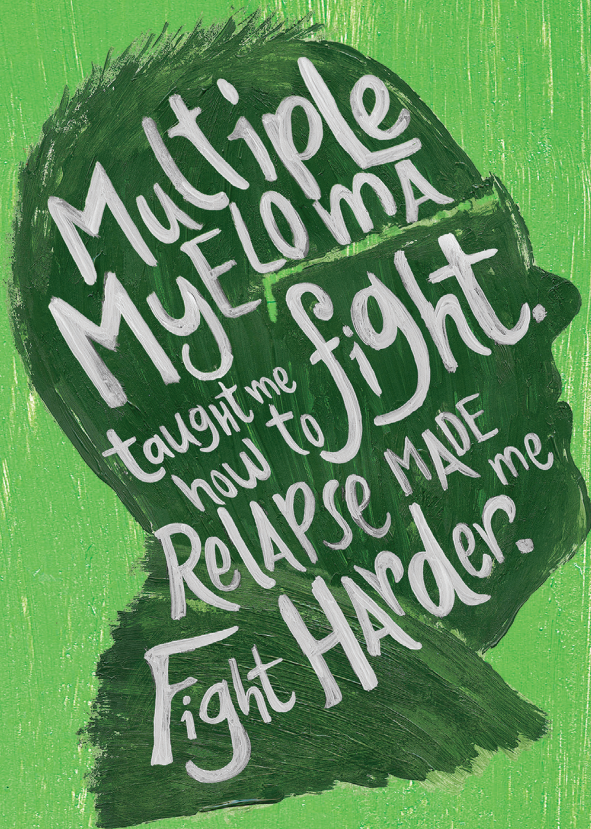 Multiple
MyELOmA
taught me
how to fight.
RelAPSe MADE me
Fight HArder.